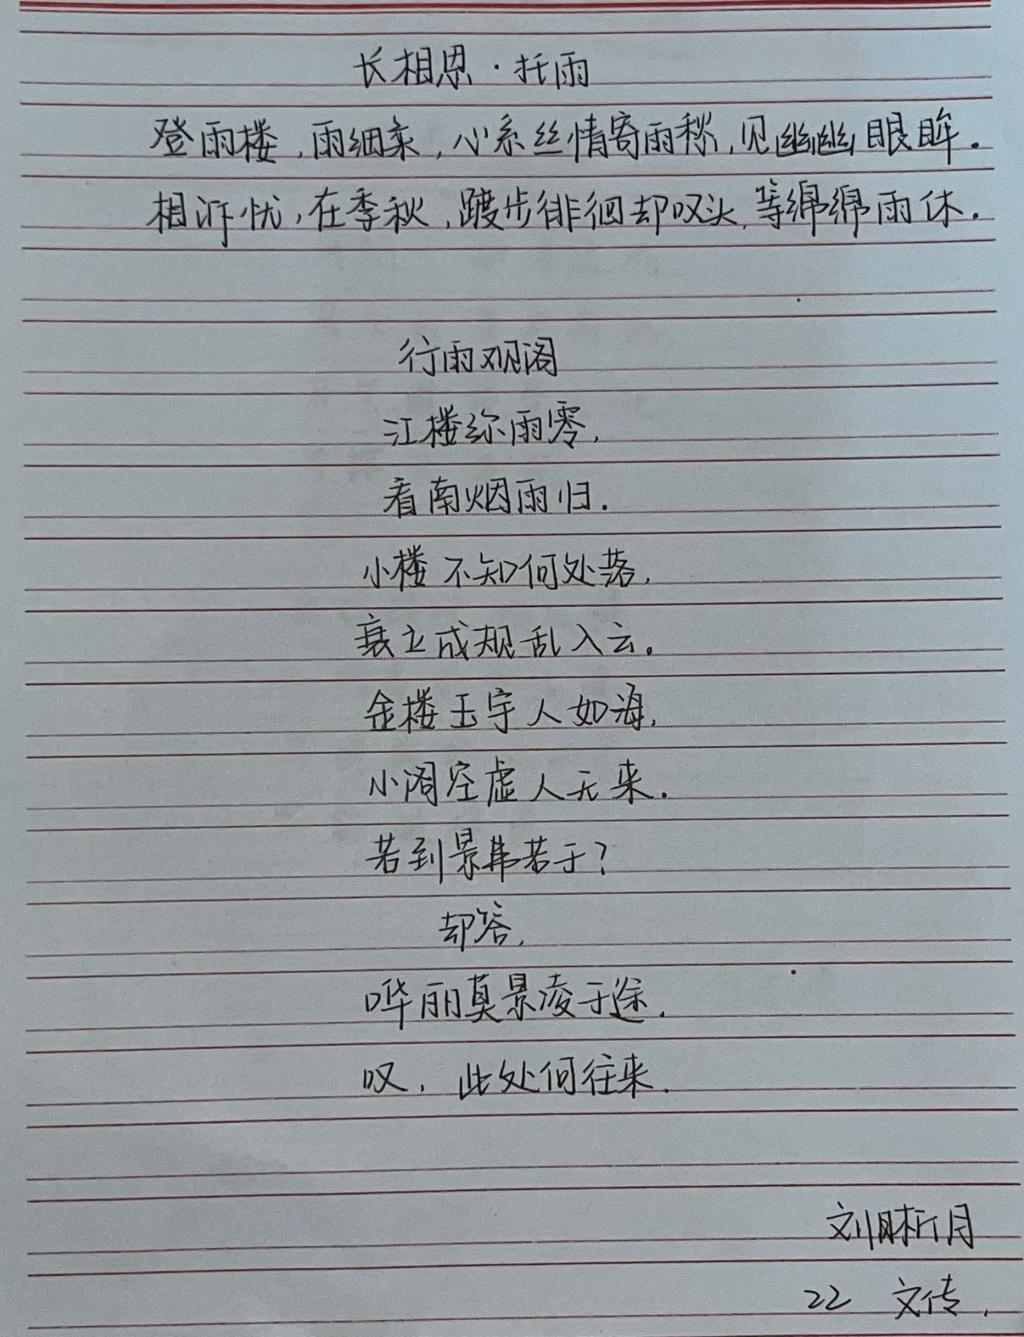 长相思·托雨
登雨楼,雨细柔,心系丝情寄雨愁,见幽幽眼眸.
相诉忧,在季秋,踱步徘徊却叹头,等绵绵雨休.
行雨观阁
江楼弥雨零,
看南烟雨归.
小楼不知何处落,
立成规乱入云。
金楼玉宇人如海,
小阁空虚人无来.
若到景弗若于?
却答,
哗丽莫景凌于
叹,此处何往来.
刘月
22 文传.